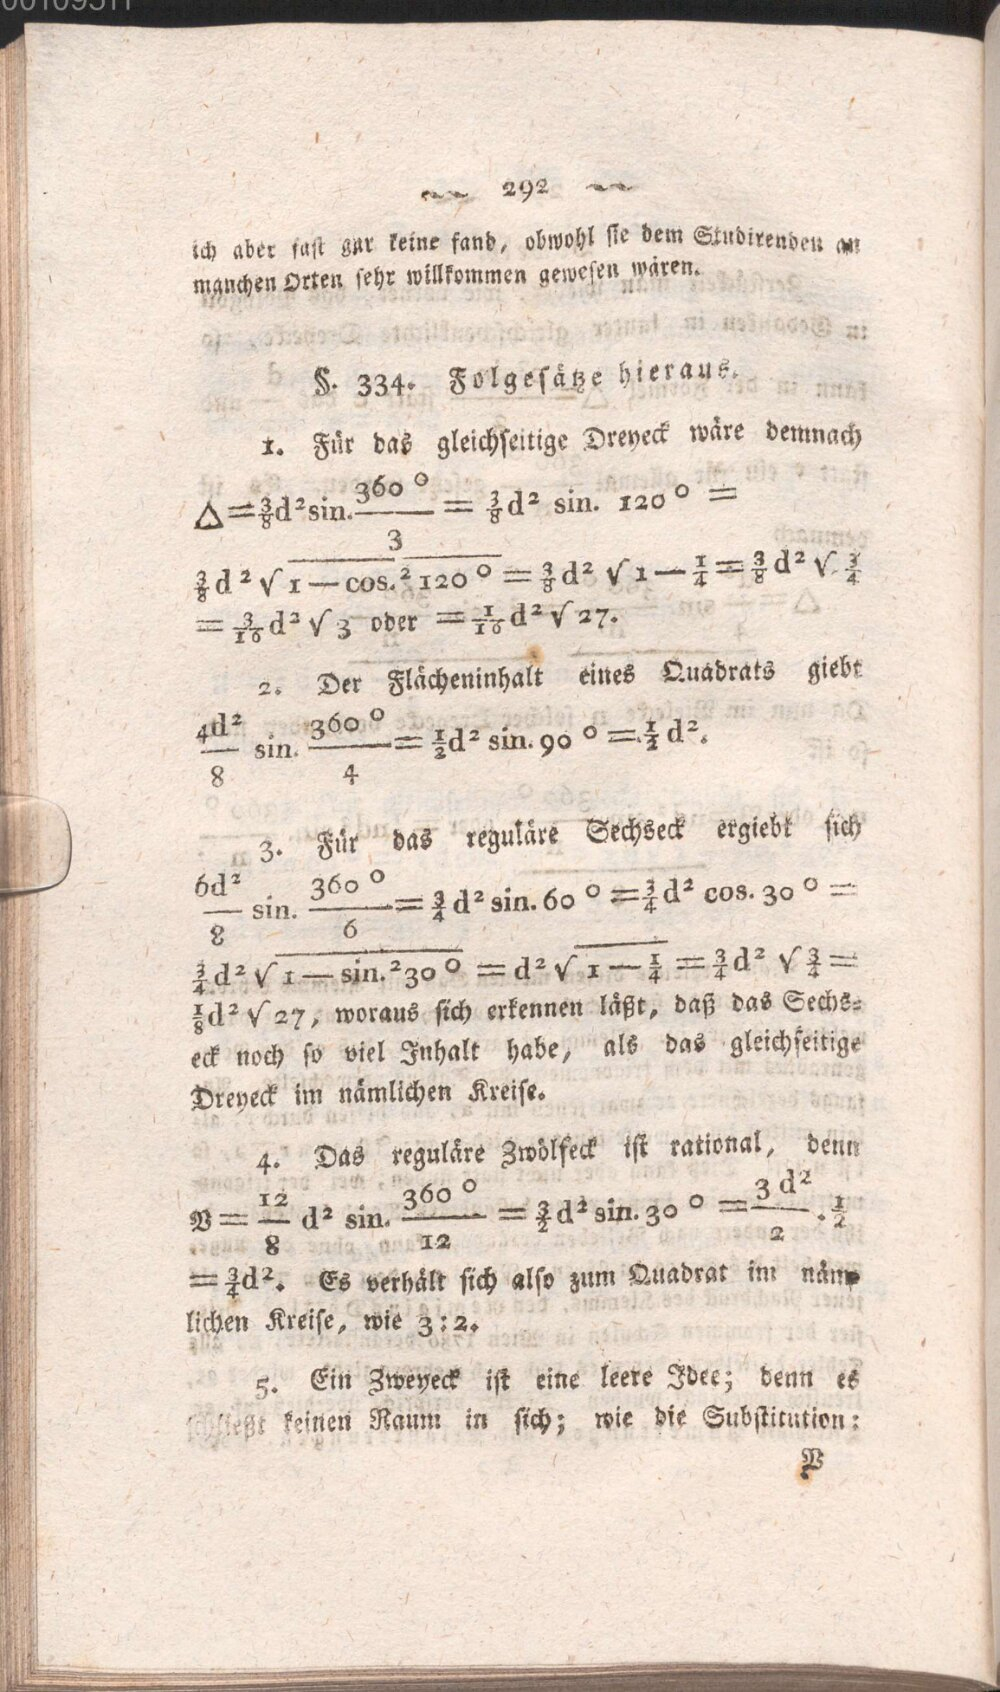 292
ich aber fast gar keine fand, obwohl sie dem Studirenden an
manchen Orten sehr willkommen gewesen wären.
§. 334. Folgesätze hieraus.
1. Für das gleichseitige Dreyeck wäre demnach
△ = 3/8 d² sin. 360°/3 = 3/8 d² sin. 120° =
3/8 d² √ 1 — cos.² 120° = 3/8 d² √ 1 — 1/4 = 3/8 d² √ 3/4
= 3/16 d² √ 3 oder = 1/16 d² √ 27.
2. Der Flächeninhalt eines Quadrats giebt
4d²/8 sin. 360°/4 = 1/2 d² sin. 90° = 1/2 d².
3. Für das reguläre Sechseck ergiebt sich
6d²/8 sin. 360°/6 = 3/4 d² sin. 60° = 3/4 d² cos. 30° =
3/4 d² √ 1 — sin.² 30° = d² √ 1 — 1/4 = 3/4 d² √ 3/4 =
1/8 d² √ 27, woraus sich erkennen läßt, daß das Sechs-
eck noch so viel Inhalt habe, als das gleichseitige
Dreyeck im nämlichen Kreise.
4. Das reguläre Zwölfeck ist rational, denn
P = 12/8 d² sin. 360°/12 = 3/2 d² sin. 30° = 3 d²/2 . 1/2
= 3/4 d². Es verhält sich also zum Quadrat im näm-
lichen Kreise, wie 3 : 2.
5. Ein Zweyeck ist eine leere Idee; denn es
schließt keinen Raum in sich; wie die Substitution:
P